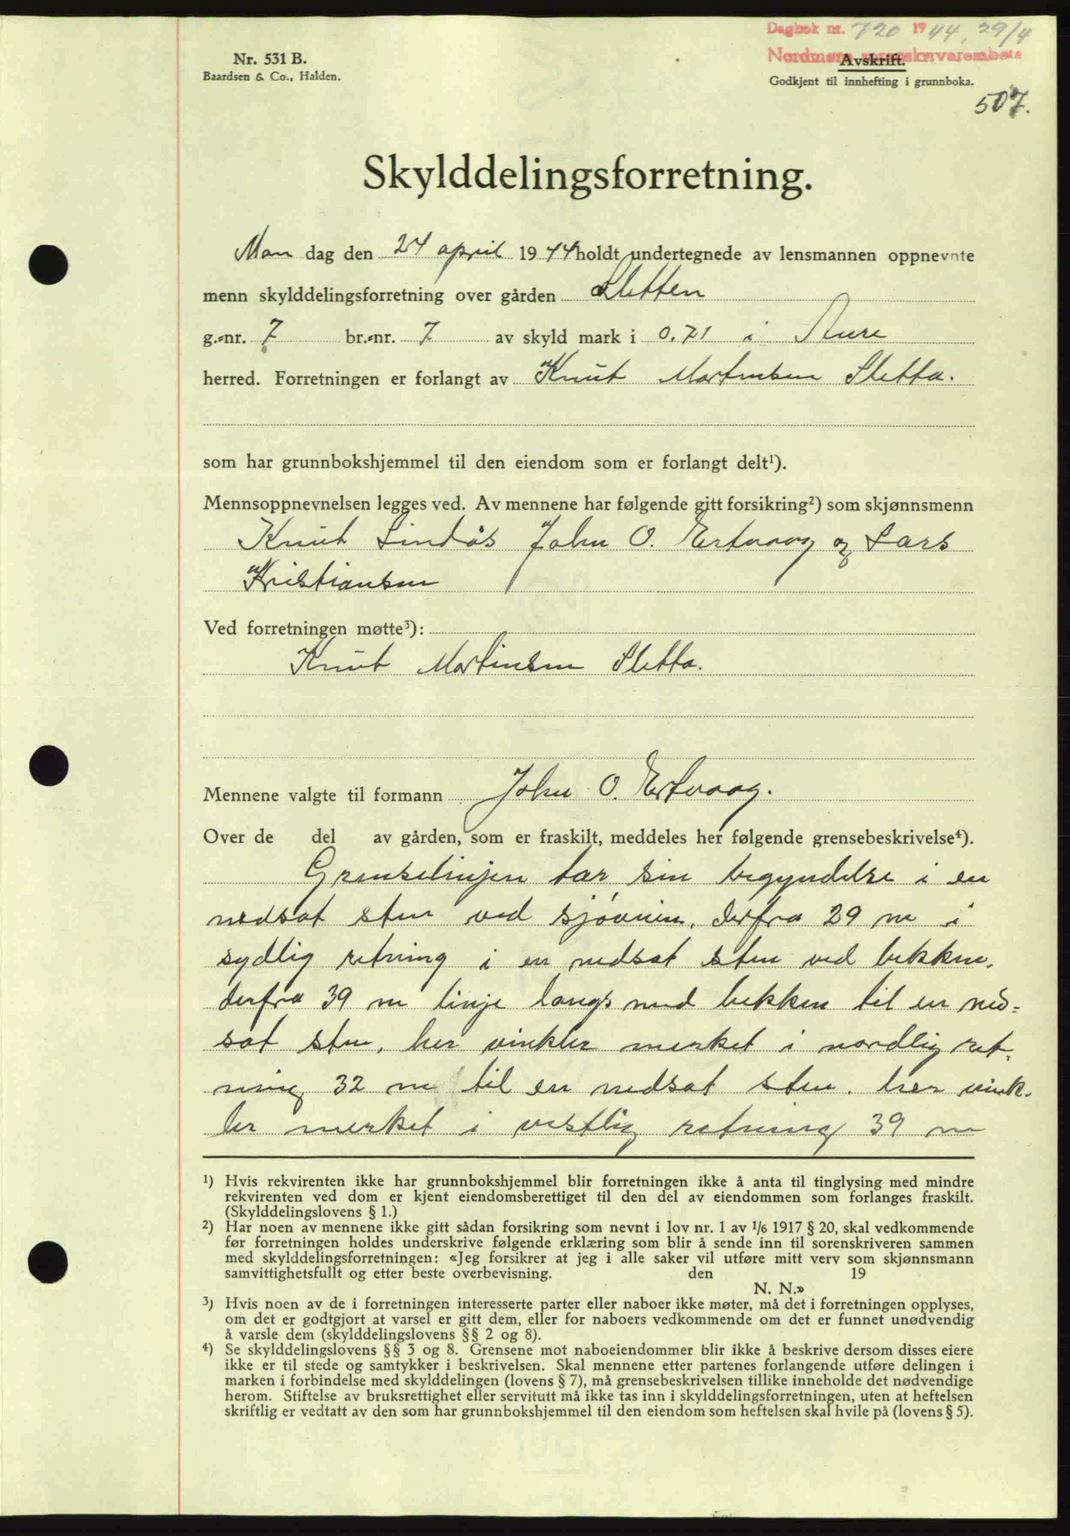 Dagbok nr. 720 1944, 29/4
Nordmøre sorenskrivarembete
Nr. 531 B.
Baardsen & Co., Halden.
Avskrift.
Godkjent til innhefting i grunnboka.
507.
Skylddelingsforretning.
Man dag den 24 april 1944 holdt undertegnede av lensmannen oppnevnte
menn skylddelingsforretning over gården Sletten
g.-nr. 7 br.-nr. 7 av skyld mark i 0.71 i Aure
herred. Forretningen er forlangt av Knut Martinsen Sletta.
som har grunnbokshjemmel til den eiendom som er forlangt delt¹).
Mennsoppnevnelsen legges ved. Av mennene har følgende gitt forsikring²) som skjønnsmenn
Knut Lindås John O. Ertvaag og Lars
Kristiansen
Ved forretningen møtte³):
Knut Martinsen Sletta.
Mennene valgte til formann John O. Ertvaag.
Over de del av gården, som er fraskilt, meddeles her følgende grensebeskrivelse⁴).
Grenselinjen tar sin begyndelse i en
nedsat sten ved sjøen, derfra 29 m i
sydlig retning i en nedsat sten ved bekken.
derfra 39 m linje langs med bekken til en ned=
sat sten, her vinkler merket i nordlig ret-
ning 32 m til en nedsat sten. her vink-
ler merket i vestlig retning 39 m
¹) Hvis rekvirenten ikke har grunnbokshjemmel blir forretningen ikke å anta til tinglysing med mindre
rekvirenten ved dom er kjent eiendomsberettiget til den del av eiendommen som forlanges fraskilt.
(Skylddelingslovens § 1.)
²) Har noen av mennene ikke gitt sådan forsikring som nevnt i lov nr. 1 av 1/6 1917 § 20, skal vedkommende
før forretningen holdes underskrive følgende erklæring som blir å sende inn til sorenskriveren sammen
med skylddelingsforretningen: «Jeg forsikrer at jeg i alle saker vil utføre mitt verv som skjønnsmann
samvittighetsfullt og etter beste overbevisning. den 19
N. N.»
³) Hvis noen av de i forretningen interesserte parter eller naboer ikke møter, må det i forretningen opplyses,
om det er godtgjort at varsel er gitt dem, eller for naboers vedkommende om det er funnet unødvendig
å varsle dem (skylddelingslovens §§ 2 og 8).
⁴) Se skylddelingslovens §§ 3 og 8. Grensene mot naboeiendommer blir ikke å beskrive dersom disses eiere
ikke er til stede og samtykker i beskrivelsen. Skal mennene etter partenes forlangende utføre delingen i
marken i forbindelse med skylddelingen (lovens § 7), må grensebeskrivelsen tillike inneholde det nødvendige
herom. Stiftelse av bruksrettighet eller servitutt må ikke tas inn i skylddelingsforretningen, uten at heftelsen
skriftlig er vedtatt av den som har grunnbokshjemmel til den eiendom som heftelsen skal hvile på (lovens § 5).